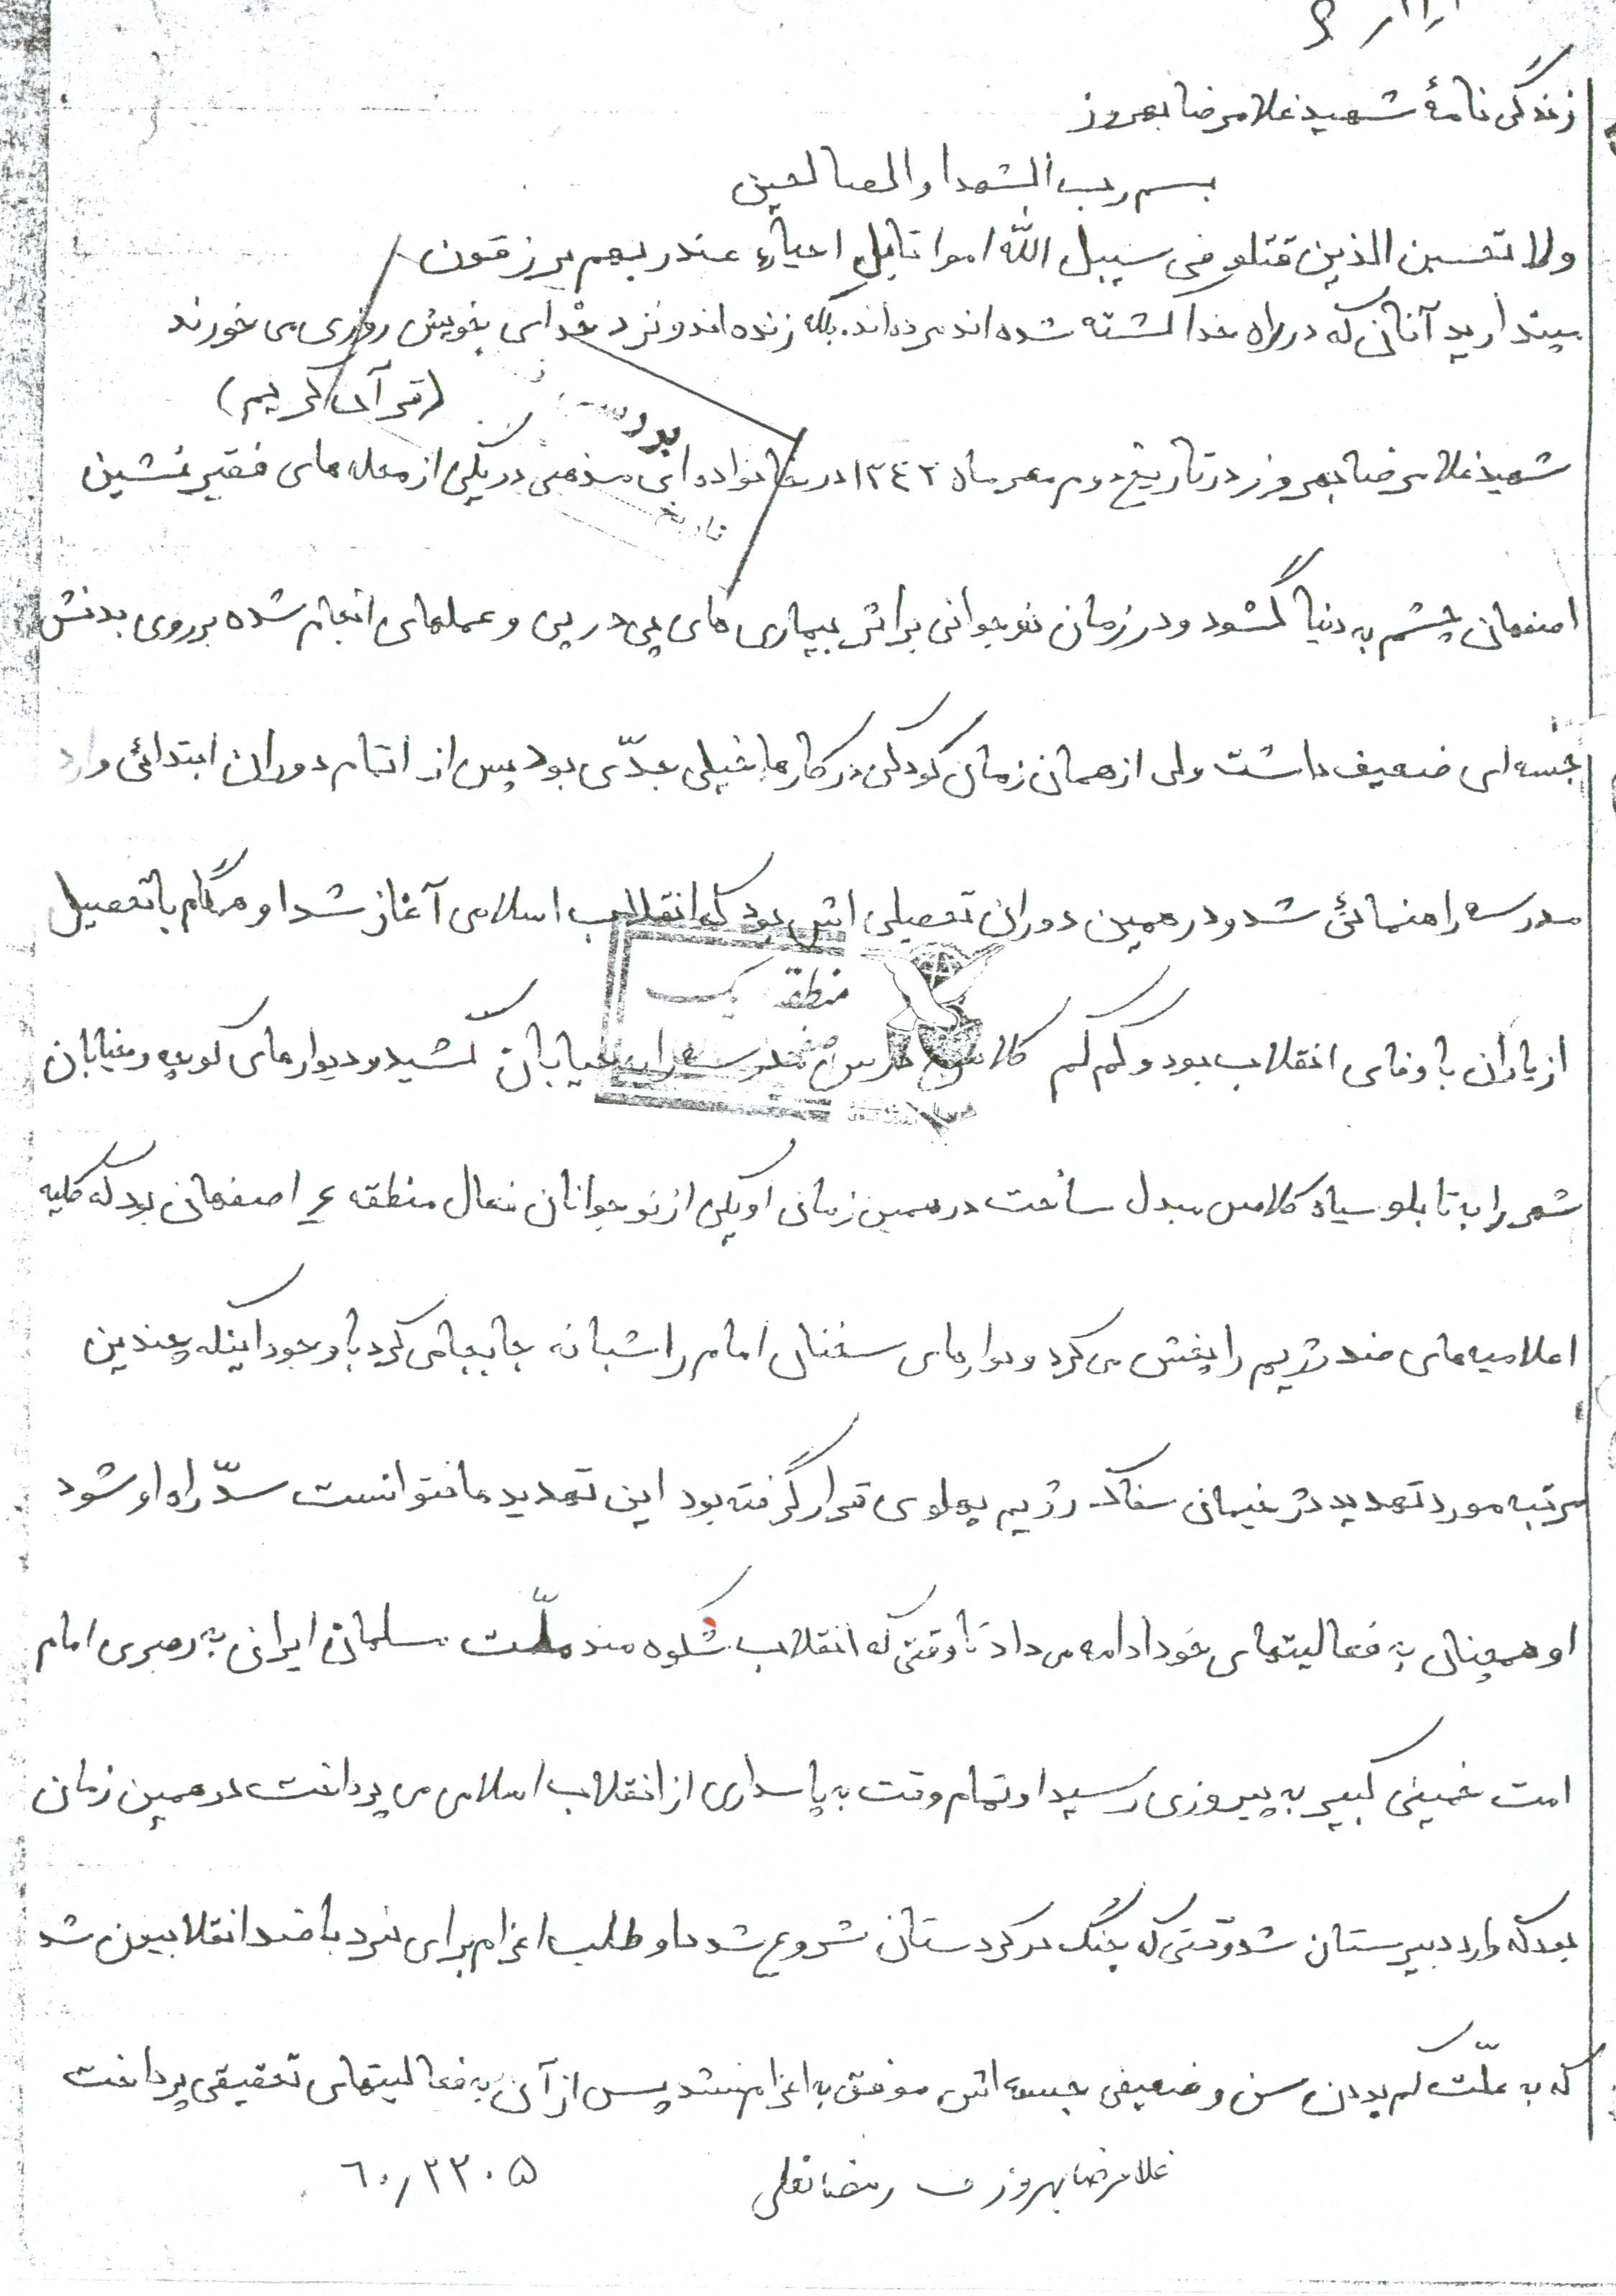 زندگی نامهٔ شهید غلامرضا بهروز
بسم رب الشهدا و الصالحین
ولا تحسبن الذین قتلو فی سبیل الله امواتا بل احیاء عند ربهم یرزقون
مپندارید آنانی که در راه خدا کشته شده اند مرده اند. بلکه زنده اند و نزد خدای خویش روزی می خورند
(قرآن کریم)
شهید غلامرضا بهروز در تاریخ دوم مهرماه ۱۳۴۲ در خانواده ای مذهبی در یکی از محله های فقیر نشین
اصفهان چشم به دنیا گشود و در زمان نوجوانی براثر بیماری های پی در پی و عملهای انجام شده بر روی بدنش
جثه ای ضعیف داشت ولی از همان زمان کودکی در کارها خیلی جدّی بود پس از اتمام دوران ابتدائی وارد
مدرسه راهنمائی شد و در همین دوران تحصیلی اش بود که انقلاب اسلامی آغاز شد او هنگام با تحصیل
از یاران با وفای انقلاب بود و کم کم کلاس درس مدرسه را به خیابان کشید و دیوارهای کوچه و خیابان
شهر را به تابلو سیاه کلاس مبدل ساخت در همین زمان او یکی از نوجوانان فعال منطقه ۴ اصفهان بود که کلیه
اعلامیه های ضد رژیم را پخش می کرد و نوارهای سخنان امام را شبانه جابجا می کرد با وجود اینکه چندین
مرتبه مورد تهدید دژخیمان سفاک رژیم پهلوی قرار گرفته بود این تهدیدها نتوانست سدّ راه او شود
او همچنان به فعالیتهای خود ادامه می داد تا وقتی که انقلاب شکوه مند ملّت مسلمان ایران به رهبری امام
امت خمینی کبیر به پیروزی رسید او تمام وقت به پاسداری از انقلاب اسلامی می پرداخت در همین زمان
بود که وارد دبیرستان شد وقتی که جنگ در کردستان شروع شد داوطلب اعزام برای نبرد با ضد انقلابیون شد
که به علّت کم بودن سن و ضعیفی جسمه اش موفق به اعزام نشد پس از آن به فعالیتهای تحقیقی پرداخت
غلامرضا بهروز ف رمضانعلی ۶۰/۲۲۰۵
منطقه یک